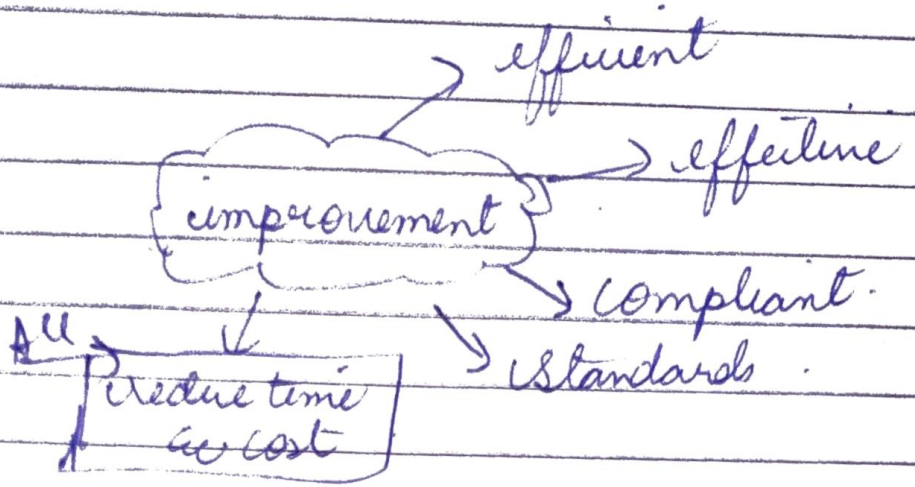 efficient
effective
improvement
compliant.
standards.
All
reduce time
cost